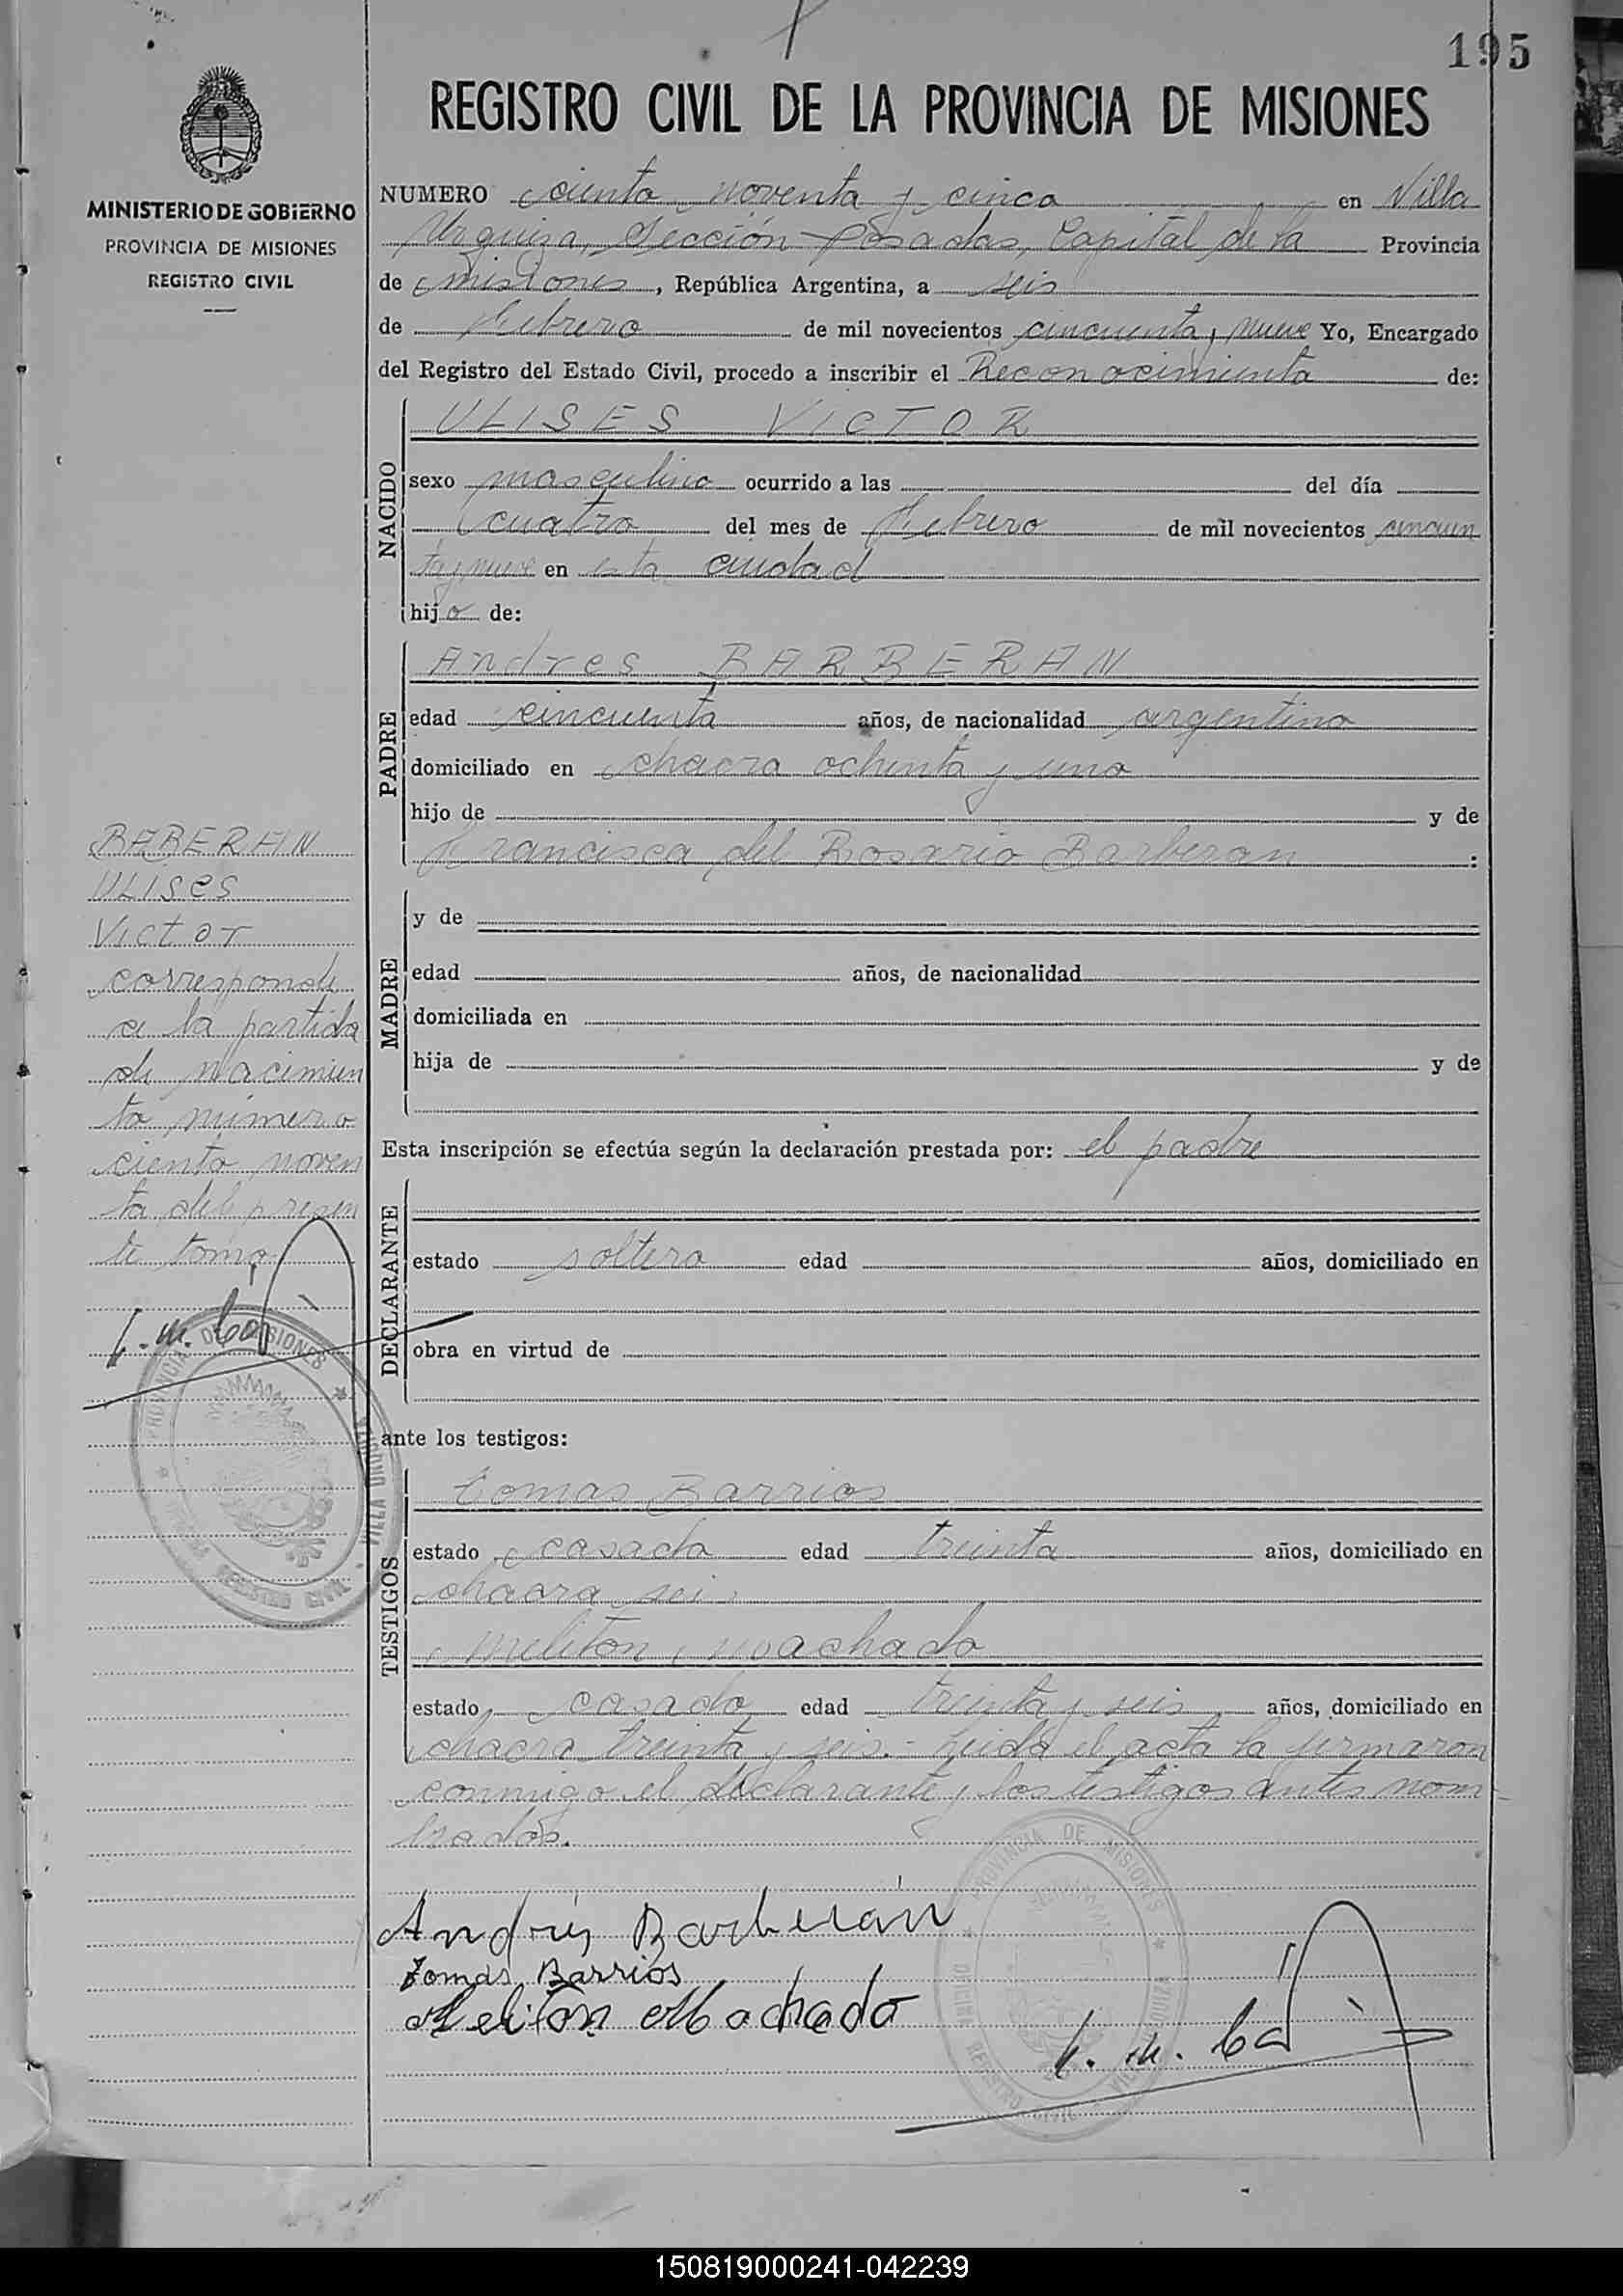 195
REGISTRO CIVIL DE LA PROVINCIA DE MISIONES
MINISTERIO DE GOBIERNO
PROVINCIA DE MISIONES
REGISTRO CIVIL
NUMERO ciento noventa y cinco en Villa
Urquiza, Sección Posadas, Capital de la Provincia
de Misiones, República Argentina, a seis
de Febrero de mil novecientos cincuenta y nueve Yo, Encargado
del Registro del Estado Civil, procedo a inscribir el Reconocimiento de:
NACIDO
ULISES VICTOR
sexo masculino ocurrido a las del día
cuatro del mes de Febrero de mil novecientos cincuen
ta y nueve en esta ciudad
hijo de:
PADRE
Andres BARBERAN
edad cincuenta años, de nacionalidad argentino
domiciliado en chacra ochenta y uno
hijo de y de
Francisca del Rosario Barberan :
MADRE
y de
edad años, de nacionalidad
domiciliada en
hija de y de
Esta inscripción se efectúa según la declaración prestada por: el padre
DECLARANTE
estado soltero edad años, domiciliado en
obra en virtud de
ante los testigos:
TESTIGOS
Tomas Barrios
estado casado edad treinta años, domiciliado en
chacra seis
Meliton Machado
estado casado edad treinta y seis años, domiciliado en
chacra treinta y seis.- Leida el acta la firmaron
conmigo el declarante y los testigos antes nom-
brados.
Andrés Barberán
Tomas Barrios
Meliton Machado
BABERAN
ULISES
Victor
corresponde
a la partida
de nacimien
to número
ciento noven
ta del presen
te tomo
PROVINCIA DE MISIONES
VILLA URQUIZA
OFICINA REGISTRO CIVIL
PROVINCIA DE MISIONES
VILLA URQUIZA
OFICINA REGISTRO CIVIL
150819000241-042239